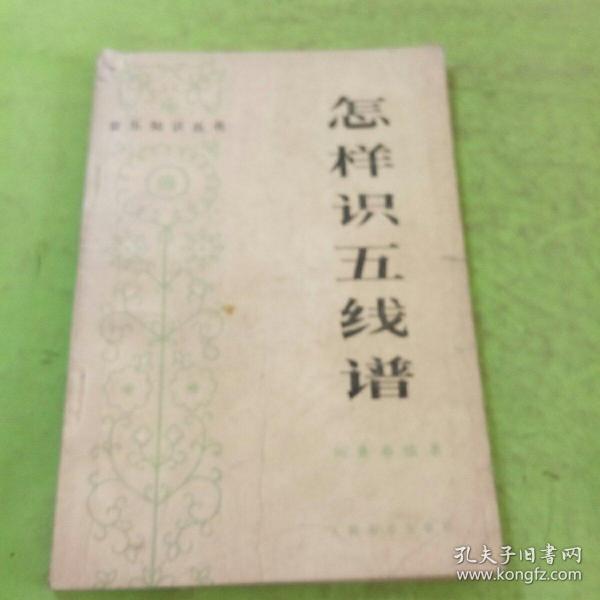 音乐知识丛书
怎样识五线谱
编著
人民音乐出版社
孔夫子旧书网
www.kongfz.com